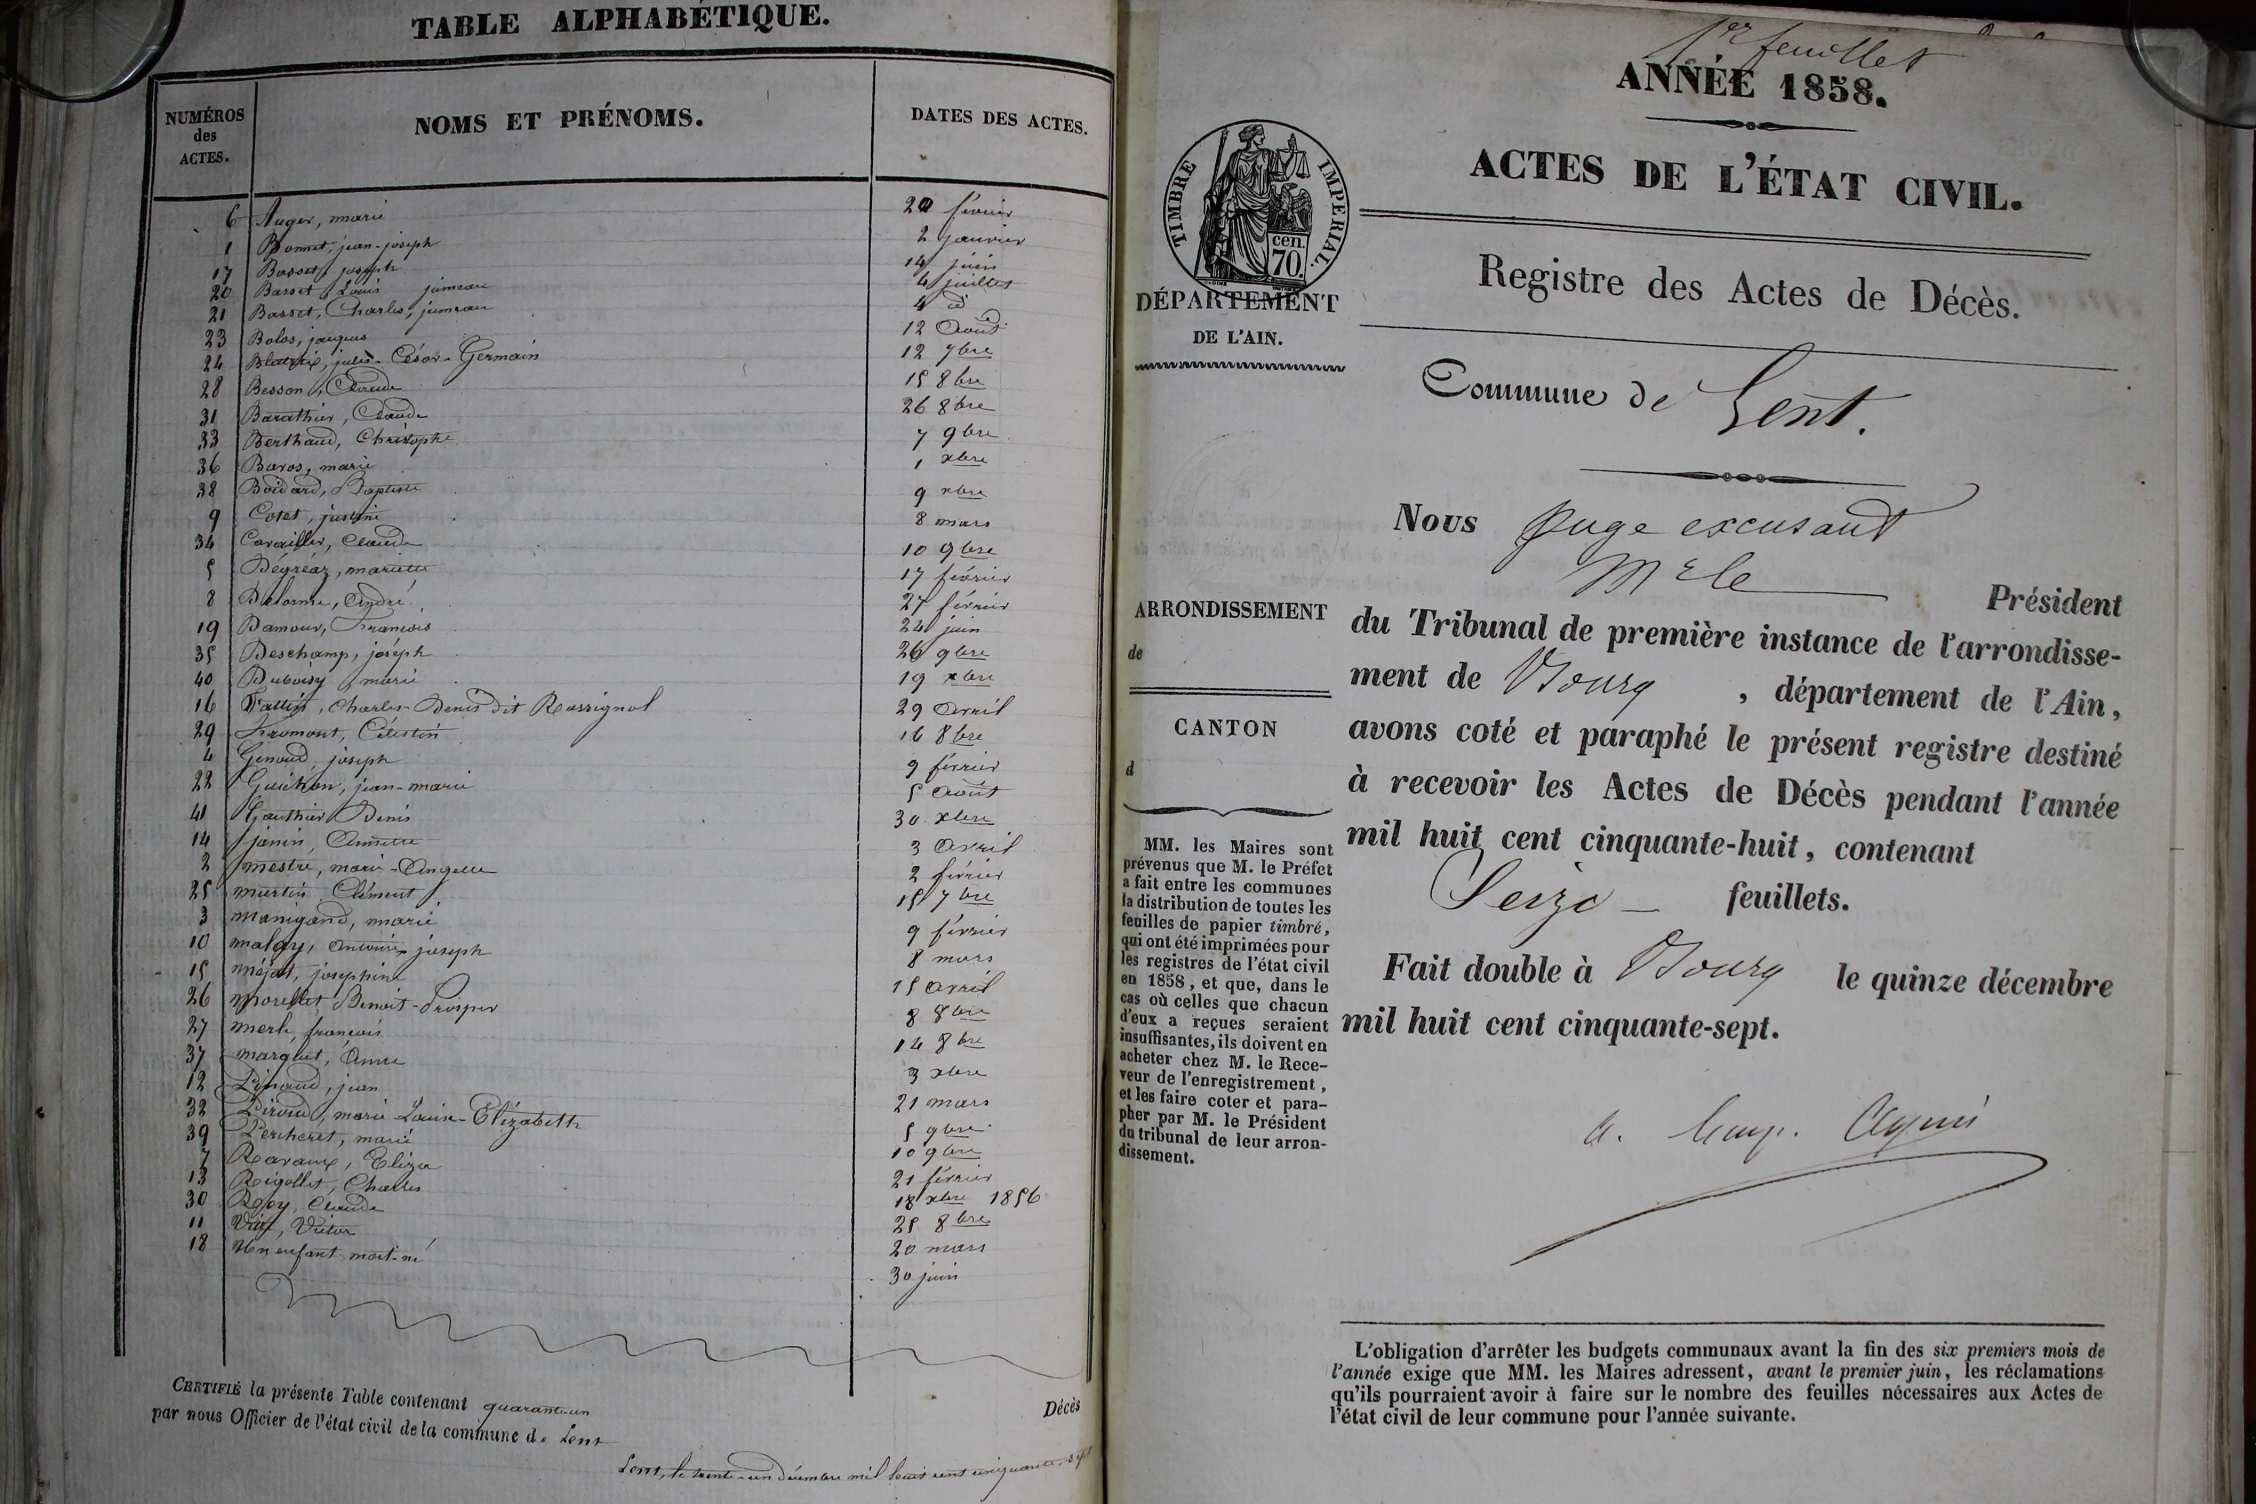 TABLE ALPHABÉTIQUE.
NUMÉROS
des
ACTES.
NOMS ET PRÉNOMS.
DATES DES ACTES.
6 Auger, marie 20 février
1 Bonnet, jean-joseph 2 janvier
17 Basset, joseph 14 juin
20 Basset, Louis jumeau 4 juillet
21 Basset, Charles, jumeau 4 d°
23 Bolos, jacques 12 Août
24 jules-César-Germain 12 7bre
28 Besson, Claude 15 8bre
31 Barathier, Claude 26 8bre
33 Berthaud, Christophe 7 9bre
36 Baros, marie 1 xbre
38 Boidard, Baptiste 9 xbre
9 Cotet, justine 8 mars
34 Cavailler, Claude 10 9bre
5 Dégréaz, mariette 17 février
8 Delorme, André 27 février
19 Damour, François 24 juin
35 Deschamp, joseph 26 9bre
40 Duboisy, marie 19 xbre
16 Fattin, Charles-Denis dit Rossignol 29 Avril
29 Fromont, Célestin 16 8bre
4 Genoud, joseph 9 février
22 Guichon, jean-marie 5 Août
41 Gauthier Denis 30 xbre
14 janin, Annette 3 Avril
2 mestre, marie-Angelle 2 février
25 martin Clément 15 7bre
3 manigand, marie 9 février
10 malay, Antoine joseph 8 mars
15 méjat, josephine 15 Avril
26 morellet Benoit-Prosper 8 8bre
27 merle, françois 14 8bre
37 marquet, Anne 3 xbre
12 Pinaud, jean 21 mars
32 Piroud, marie Louise-Elizabeth 5 9bre
39 Percheret, marie 10 9bre
7 Ravaux, Eliza 21 février
13 Rigollet, Charles 18 xbre 1856
30 Roy, Claude 25 8bre
11 Vieux, Victor 20 mars
18 Un enfant mort-né 30 juin
CERTIFIÉ la présente Table contenant quarante-un Décès
par nous Officier de l'état civil de la commune de Lent
Lent, le trente-un décembre mil huit cent cinquante-sept
1er feuillet
ANNÉE 1858.
ACTES DE L'ÉTAT CIVIL.
TIMBRE IMPERIAL.
cen.
70.
DÉPARTEMENT
DE L'AIN.
Registre des Actes de Décès.
Commune de Lent.
Nous Juge excusant
Mr le Président
du Tribunal de première instance de l'arrondisse-
ment de Bourg, département de l'Ain,
avons coté et paraphé le présent registre destiné
à recevoir les Actes de Décès pendant l'année
mil huit cent cinquante-huit, contenant
Seize feuillets.
Fait double à Bourg le quinze décembre
mil huit cent cinquante-sept.
ARRONDISSEMENT
de
CANTON
d
MM. les Maires sont
prévenus que M. le Préfet
a fait entre les communes
la distribution de toutes les
feuilles de papier timbré,
qui ont été imprimées pour
les registres de l'état civil
en 1858, et que, dans le
cas où celles que chacun
d'eux a reçues seraient
insuffisantes, ils doivent en
acheter chez M. le Rece-
veur de l'enregistrement,
et les faire coter et para-
pher par M. le Président
du tribunal de leur arron-
dissement.
L'obligation d'arrêter les budgets communaux avant la fin des six premiers mois de
l'année exige que MM. les Maires adressent, avant le premier juin, les réclamations
qu'ils pourraient avoir à faire sur le nombre des feuilles nécessaires aux Actes de
l'état civil de leur commune pour l'année suivante.